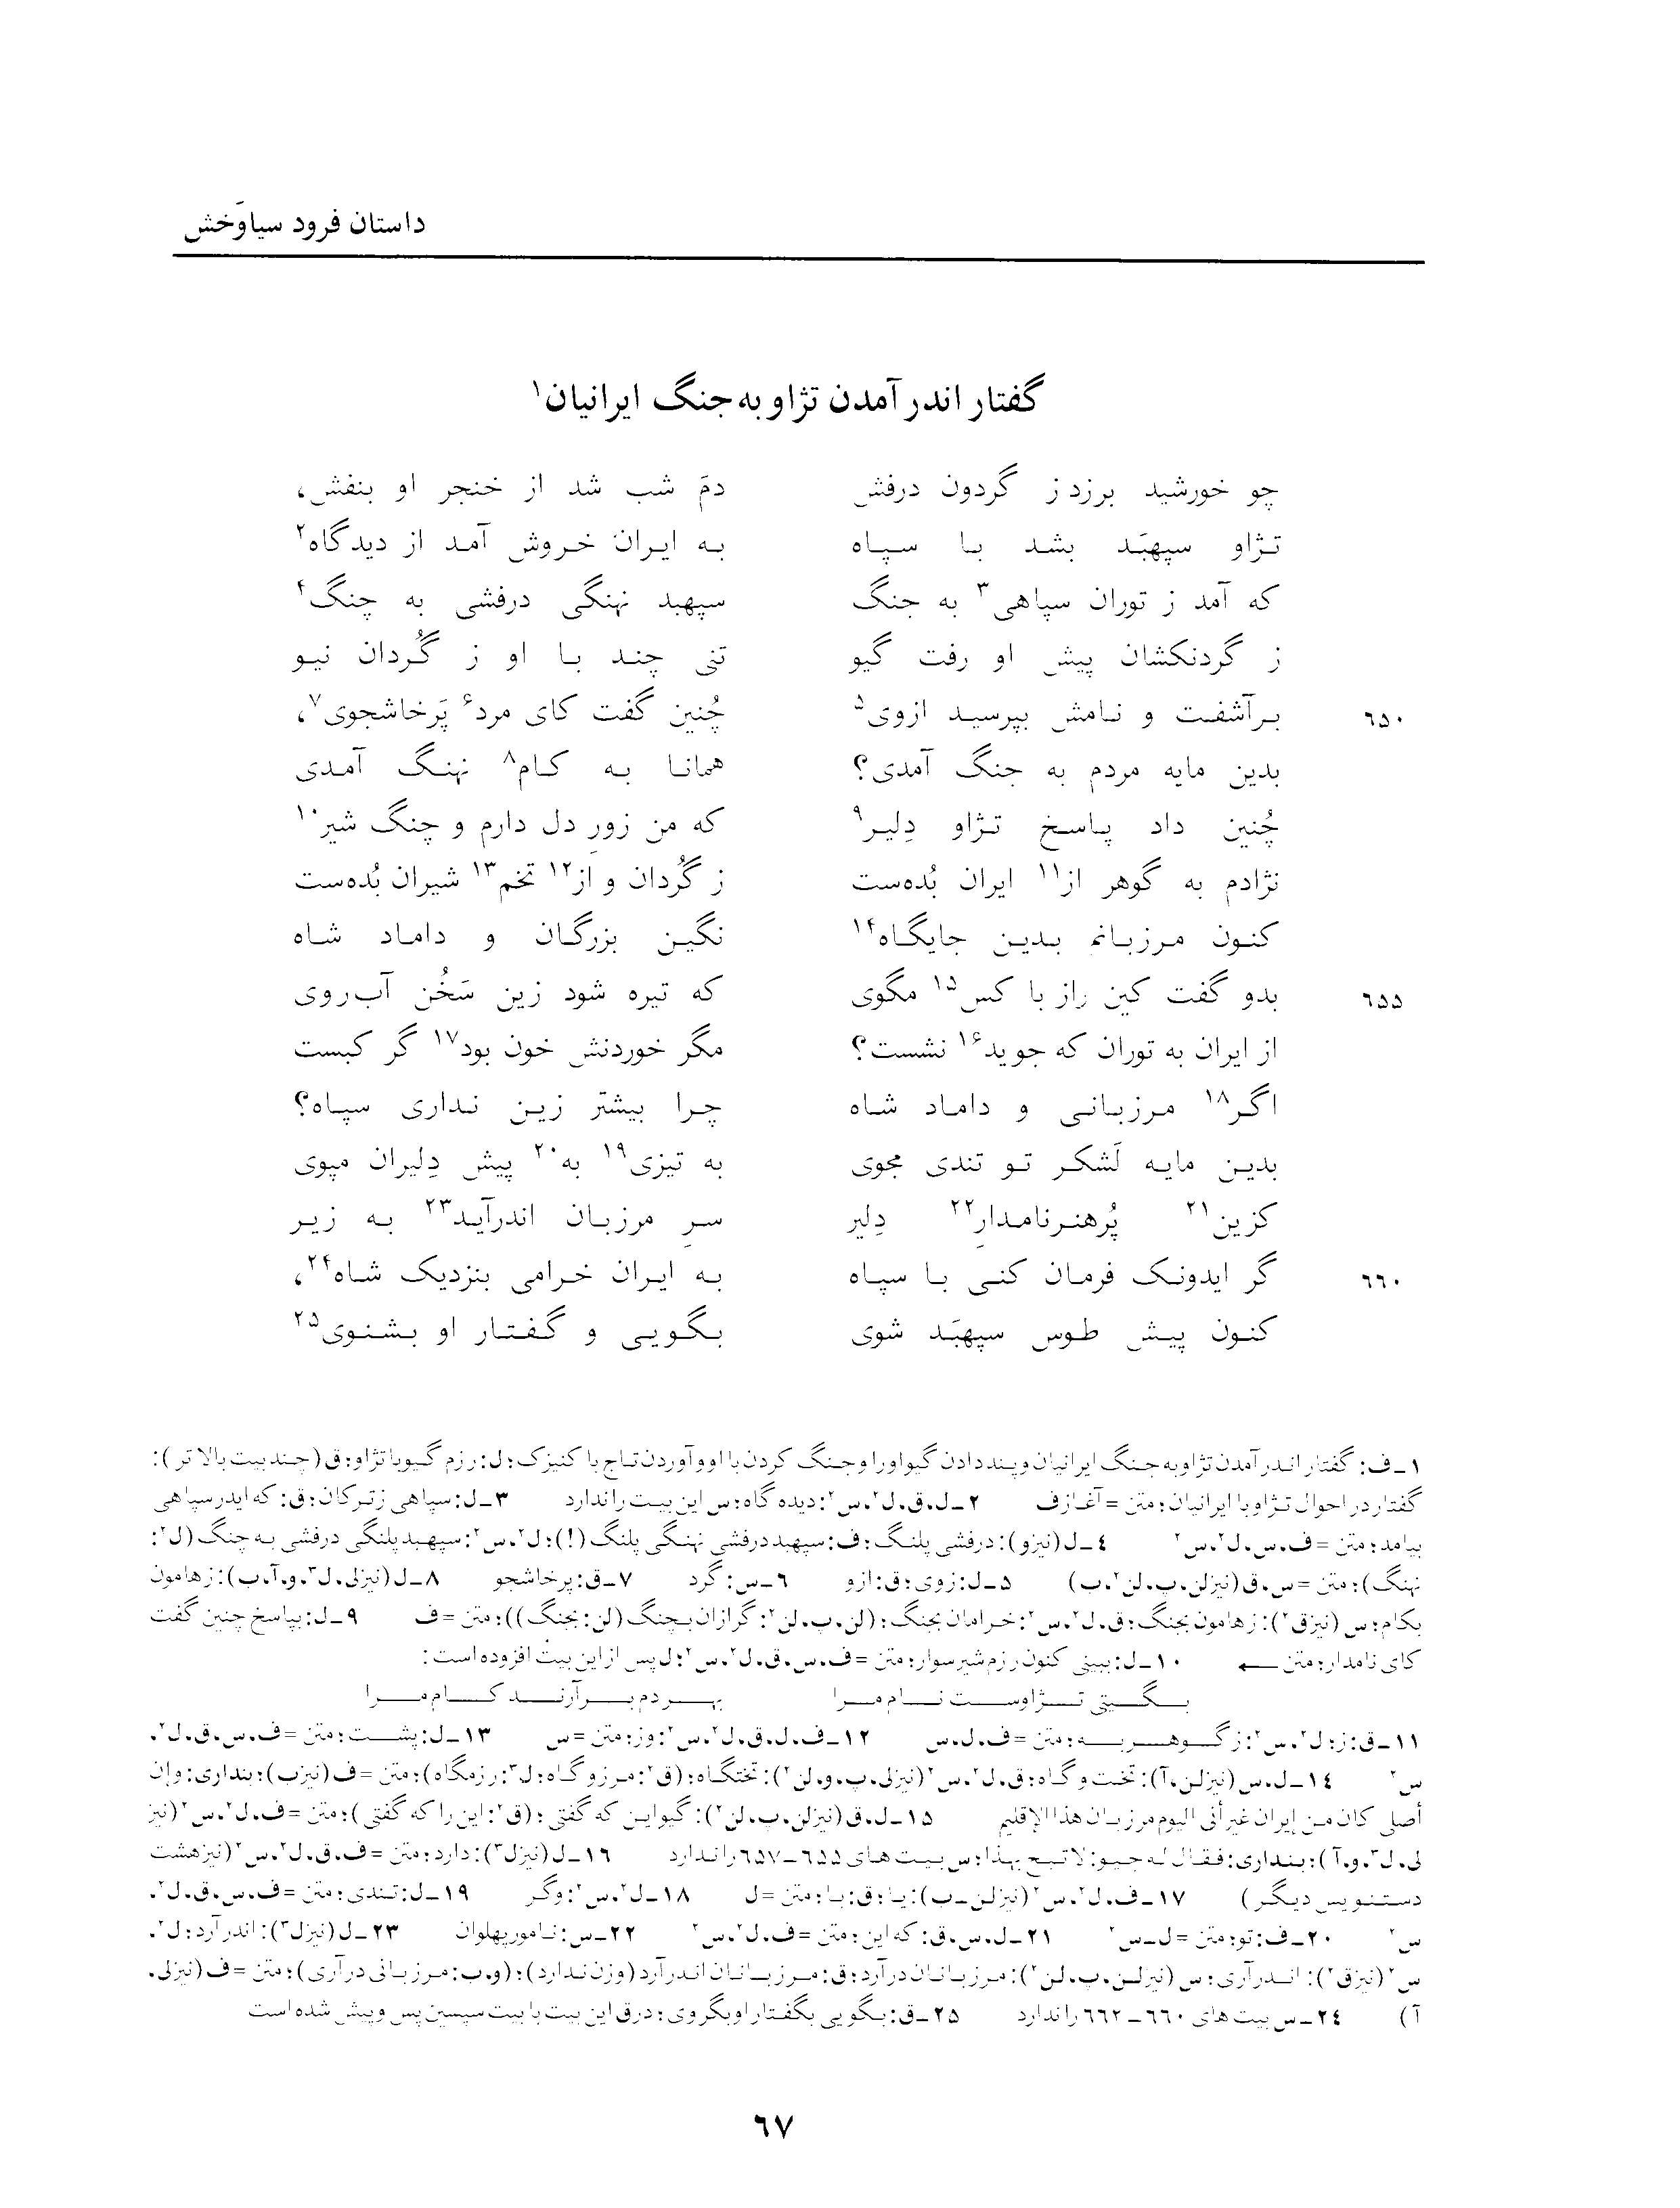 داستان فرود سیاوَخش
گفتار اندر آمدن تژاو به جنگ ایرانیان۱
چو خورشید برزد ز گردون درفش دمِ شب شد از خنجر او بنفش،
تژاو سپهبَد بشد با سپاه به ایران خروش آمد از دیدگاه۲
که آمد ز توران سپاهی۳ به جنگ سپهبد نهنگی درفشی به چنگ۴
ز گردنکشان پیش او رفت گیو تنی چند با او ز گُردان نیو
۶۵۰ برآشفت و نامش بپرسید ازوی۵ چُنین گفت کای مرد۶ پَرخاشجوی۷،
بدین مایه مردم به جنگ آمدی؟ همانا به کام۸ نهنگ آمدی
چُنین داد پاسخ تژاو دِلیر۹ که من زورِ دل دارم و چنگ شیر۱۰
نژادم به گوهر از۱۱ ایران بُده‌ست ز گُردان و از۱۲ تخم۱۳ شیران بُده‌ست
کنون مرزبانم بدین جایگاه۱۴ نگین بزرگان و داماد شاه
۶۵۵ بدو گفت کین راز با کس۱۵ مگوی که تیره شود زین سَخُن آب‌روی
از ایران به توران که جوید۱۶ نشست؟ مگر خوردنش خون بود۱۷ گر کبست
اگر۱۸ مرزبانی و داماد شاه چرا بیشتر زین نداری سپاه؟
بدین مایه لَشکر تو تندی مجوی به تیزی۱۹ به۲۰ پیش دِلیران مپوی
کزین۲۱ پُرهنرنامدارِ۲۲ دِلیر سرِ مرزبان اندرآید۲۳ به زیر
۶۶۰ گر ایدونک فرمان کنی با سپاه به ایران خرامی بنزدیک شاه۲۴،
کنون پیش طوس سپهبَد شوی بگویی و گفتار او بشنوی۲۵
۱ـ ف: گفتار اندر آمدن تژاو به جنگ ایرانیان و پند دادن گیو او را و جنگ کردن با او و آوردن تاج با کنیزک؛ ل: رزم گیو با تژاو؛ ق (چند بیت بالاتر):
گفتار در احوال تژاو با ایرانیان؛ متن = آغاز ف ۲ـ ل، ق، ل۲، س۲: دیده گاه؛ س این بیت را ندارد ۳ـ ل: سپاهی ز ترکان؛ ق: که ایدر سپاهی
بیامد؛ متن = ف، س، ل۲، س۲ ۴ـ ل (نیز و): درفشی پلنگ؛ ف: سپهبد درفشی نهنگی پلنگ (!)؛ ل۲، س۲: سپهبد پلنگی درفشی به چنگ (ل۲:
نهنگ)؛ متن = س، ق (نیز لن، پ، لن۲، ب) ۵ـ ل: زوی؛ ق: ازو ۶ـ س: گرد ۷ـ ق: پرخاشجو ۸ـ ل (نیز لی، ل۳، و، آ، ب): ز هامون
بکام؛ س (نیز ق۲): ز هامون بجنگ؛ ق، ل۲، س۲: خرامان بجنگ؛ (لن، پ، لن۲: گرازان بچنگ (لن: بجنگ))؛ متن = ف ۹ـ ل: بپاسخ چنین گفت
کای نامدار؛ متن ← ۱۰ـ ل: ببینی کنون رزم شیر سوار؛ متن = ف، س، ق، ل۲، س۲؛ ل پس از این بیت افزوده است:
بگیتی تژاوست نام مرا بهر دم برآرند کام مرا
۱۱ـ ق: ز؛ ل۲، س۲: ز گوهر به؛ متن = ف، ل، س ۱۲ـ ف، ل، ق، ل۲، س۲: وز؛ متن = س ۱۳ـ ل: پشت؛ متن = ف، س، ق، ل۲،
س۲ ۱۴ـ ل، س (نیز لن، آ): تخت و گاه؛ ق، ل۲، س۲ (نیز لی، پ، و، لن۲): تختگاه؛ (ق۲: مرز و گاه؛ ل۳: رزمگاه)؛ متن = ف (نیز ب)؛ بنداری: وإن
أصلی کان من إیران غیر أنی الیوم مرزبان هذا الإقلیم ۱۵ـ ل، ق (نیز لن، پ، لن۲): گیو این که گفتی؛ (ق۲: این را که گفتی)؛ متن = ف، ل۲، س۲ (نیز
لی، ل۳، و، آ)؛ بنداری: فقال له جیو: لا تبح بهذا؛ س بیت های ۶۵۵ ـ ۶۵۷ را ندارد ۱۶ـ ل (نیز ل۳): دارد؛ متن = ف، ق، ل۲، س۲ (نیز هشت
دستنویس دیگر) ۱۷ـ ف، ل۲، س۲ (نیز لن ـ ب): یا؛ ق: با؛ متن = ل ۱۸ـ ل۲، س۲: وگر ۱۹ـ ل: تندی؛ متن = ف، س، ق، ل۲،
س۲ ۲۰ـ ف: تو؛ متن = ل ـ س۲ ۲۱ـ ل، س، ق: که این؛ متن = ف، ل۲، س۲ ۲۲ـ س: نامور پهلوان ۲۳ـ ل (نیز ل۳): اندر آرد؛ ل۲،
س۲ (نیز ق۲): اندر آری؛ س (نیز لن، پ، لن۲): مرزبانان درآرد؛ ق: مرزبانان اندر آرد (وزن ندارد)؛ (و، ب: مرزبانی درآری)؛ متن = ف (نیز لی،
آ) ۲۴ـ س بیت های ۶۶۰ ـ ۶۶۲ را ندارد ۲۵ـ ق: بگویی بگفتار او بگروی؛ در ق این بیت با بیت سپسین پس و پیش شده است
۶۷